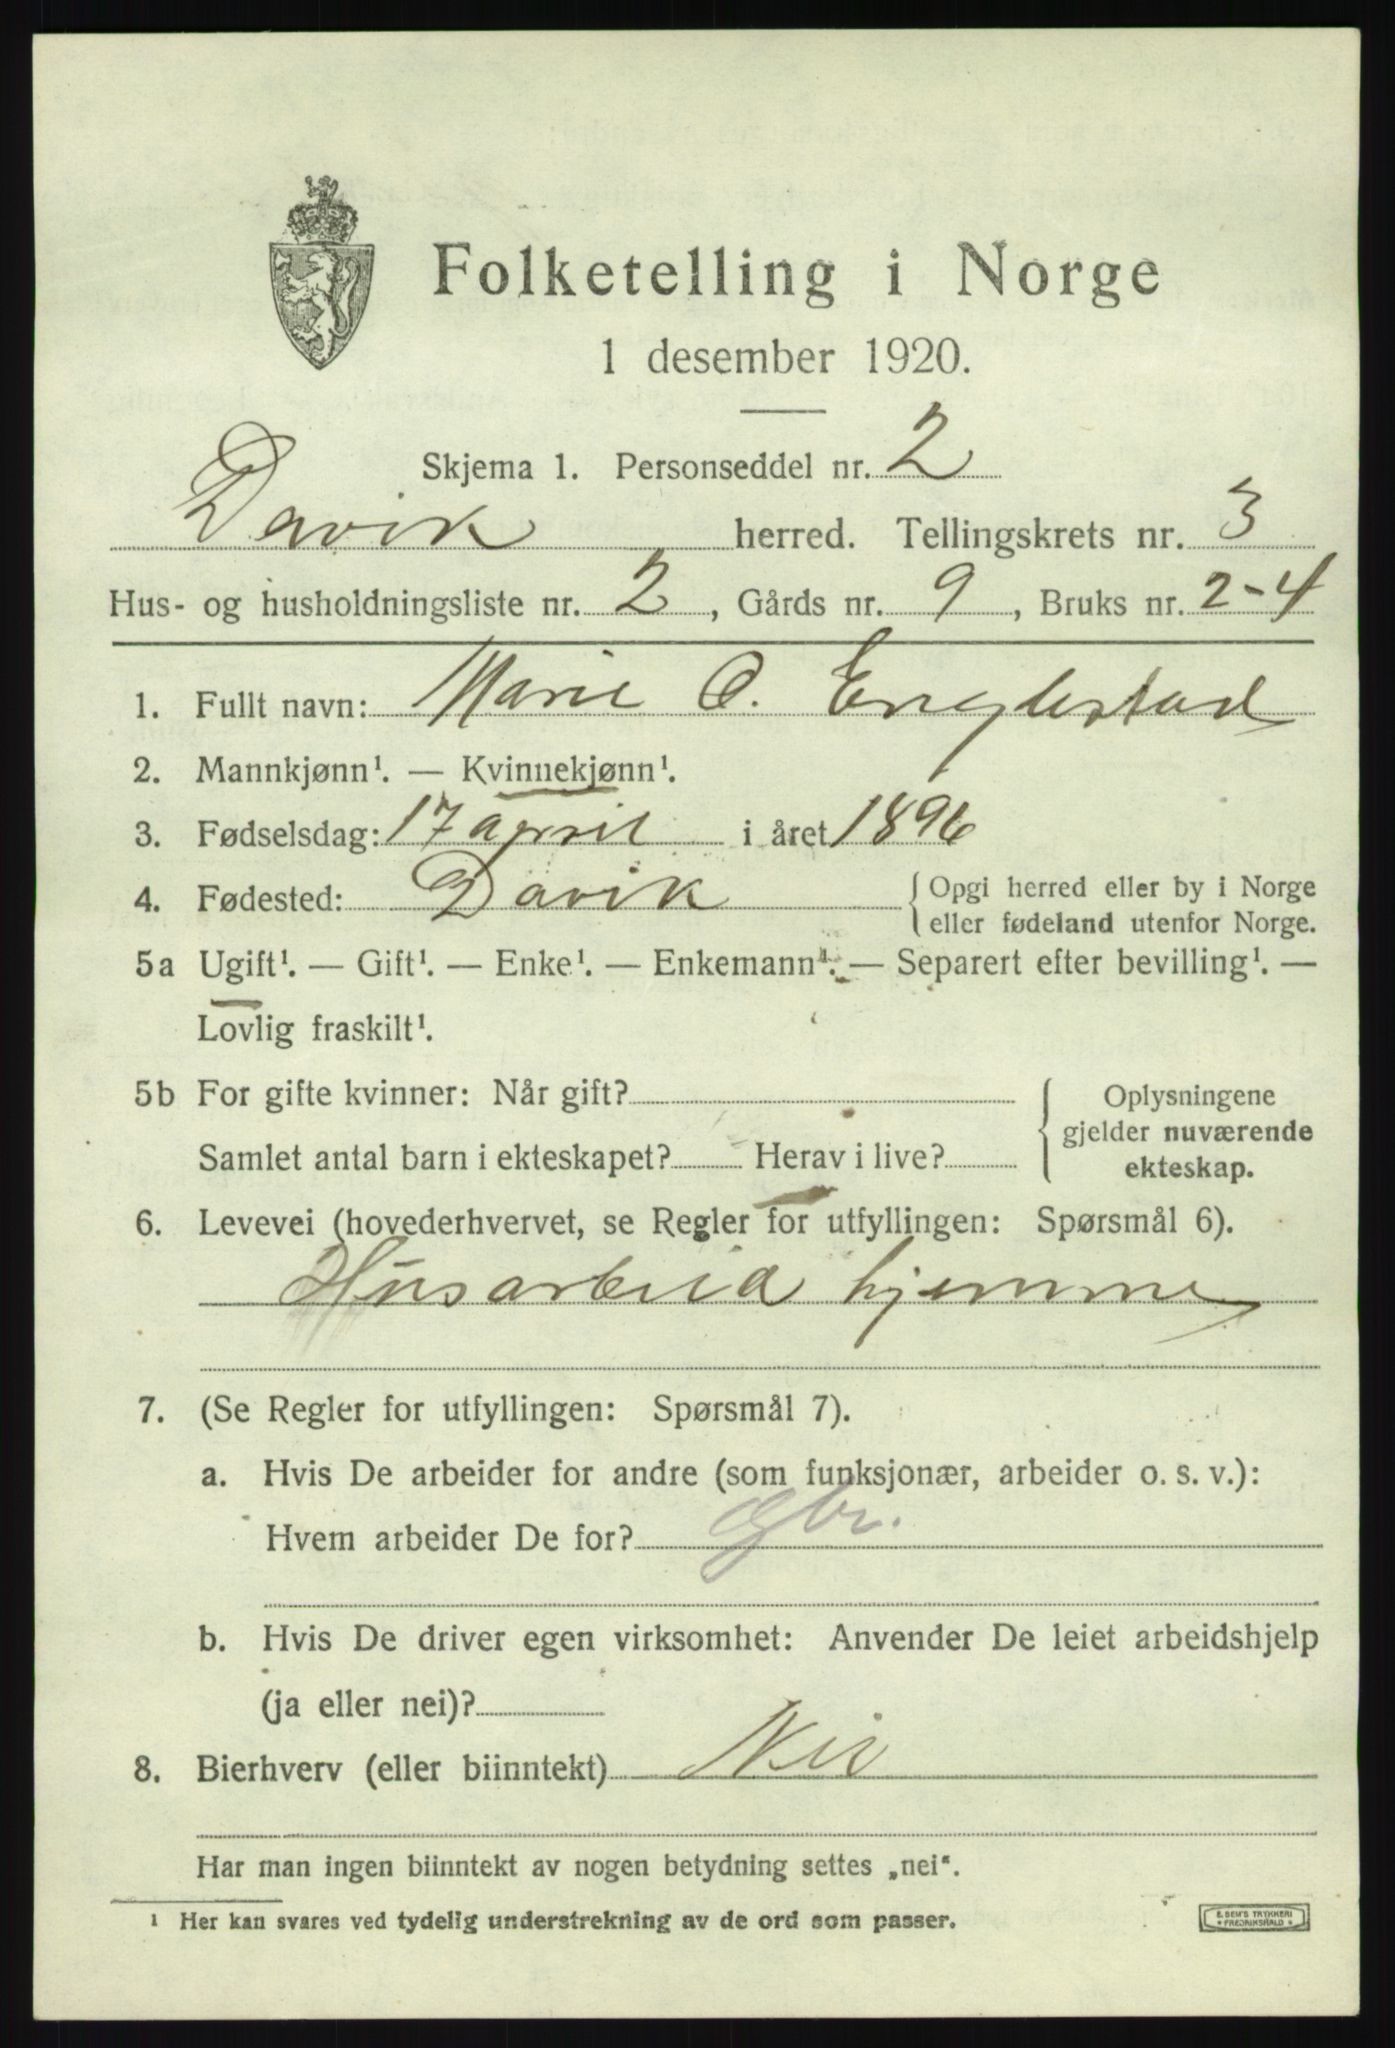 Folketelling i Norge
1 desember 1920.
Skjema 1. Personseddel nr. 2
Davik herred. Tellingskrets nr. 3
Hus- og husholdningsliste nr. 2, Gårds nr. 9, Bruks nr. 2-4
1. Fullt navn: Marie O. Englestad
2. Mannkjønn¹. — Kvinnekjønn¹.
3. Fødselsdag: 17 april i året 1896
4. Fødested: Davik { Opgi herred eller by i Norge
eller fødeland utenfor Norge.
5a Ugift¹. — Gift¹. — Enke¹. — Enkemann¹. — Separert efter bevilling¹. —
Lovlig fraskilt¹.
5b For gifte kvinner: Når gift?
Samlet antal barn i ekteskapet? Herav i live?
Oplysningene
gjelder nuværende
ekteskap.
6. Levevei (hovederhvervet, se Regler for utfyllingen: Spørsmål 6).
Husarbeid hjemme
7. (Se Regler for utfyllingen: Spørsmål 7).
a. Hvis De arbeider for andre (som funksjonær, arbeider o. s. v.):
Hvem arbeider De for? Gbr.
b. Hvis De driver egen virksomhet: Anvender De leiet arbeidshjelp
(ja eller nei)?
8. Bierhverv (eller biinntekt) Nei
Har man ingen biinntekt av nogen betydning settes „nei“.
¹ Her kan svares ved tydelig understrekning av de ord som passer.
E. SEM'S TRYKKERI
* FREDRIKSHALD *